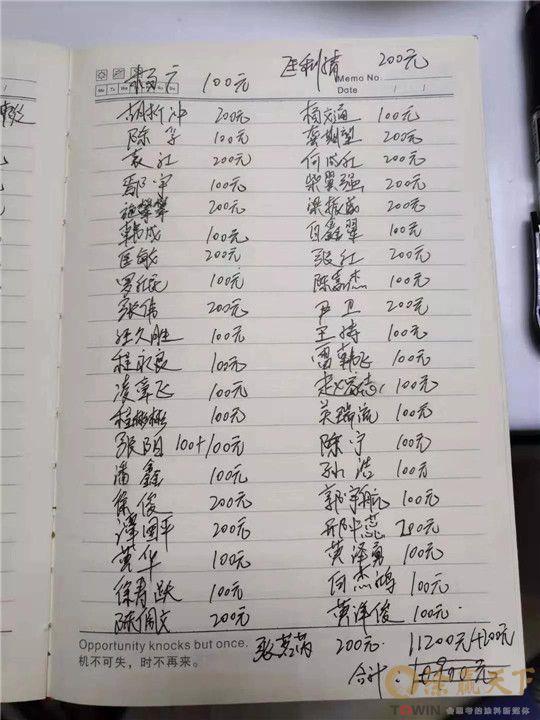 匡利精 200元
100元 Memo No.
Mo Tu We Th Fr Sa Su Date / /
胡新冲 200元 杨文涵 100元
陈子 100元 200元
袁红 200元 何成红 200元
鄢宇 100元 柴翼强 200元
200元 梁振威 200元
韩成 100元 向鑫翠 100元
匡敏 200元 张红 200元
100元 陈嘉杰 100元
张伟 200元 尹卫 200元
汪久胜 100元 王持 100元
程永良 100元 雷韩飞 100元
凌章飞 100元 赵 100元
程彬彬 100元 吴瑞流 100元
张阳 100+100元 陈宁 100元
潘鑫 100元 孙浩 100元
徐俊 200元 郭宇航 100元
谭国平 200元 邢中蕊 200元
黄华 100元 黄泽勇 100元
徐寿跃 100元 向杰鸿 100元
陈佩文 200元 黄泽俊 100元
Opportunity knocks but once. 200元 11200元+200元
机不可失，时不再来。 合计: 10900元
涂赢天下
TOWIN 会思考的涂料新媒体